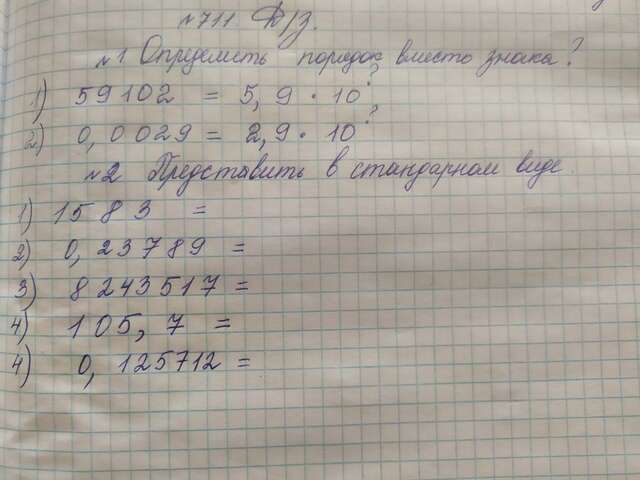 №711 Д/З.
№1 Определить порядок вместо знака?
1) 59102 = 5,9 · 10^?
2) 0,0029 = 2,9 · 10^?
№2 Представить в стандарном виде.
1) 1583 =
2) 0,23789 =
3) 8243517 =
4) 105,7 =
4) 0,125712 =